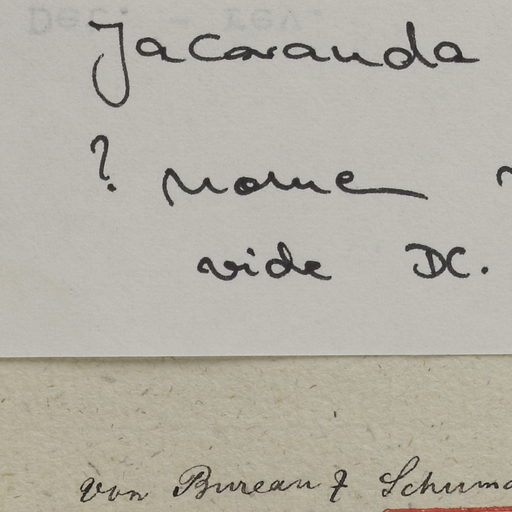 Jacaranda
? nome
vide DC.
von Bureau &